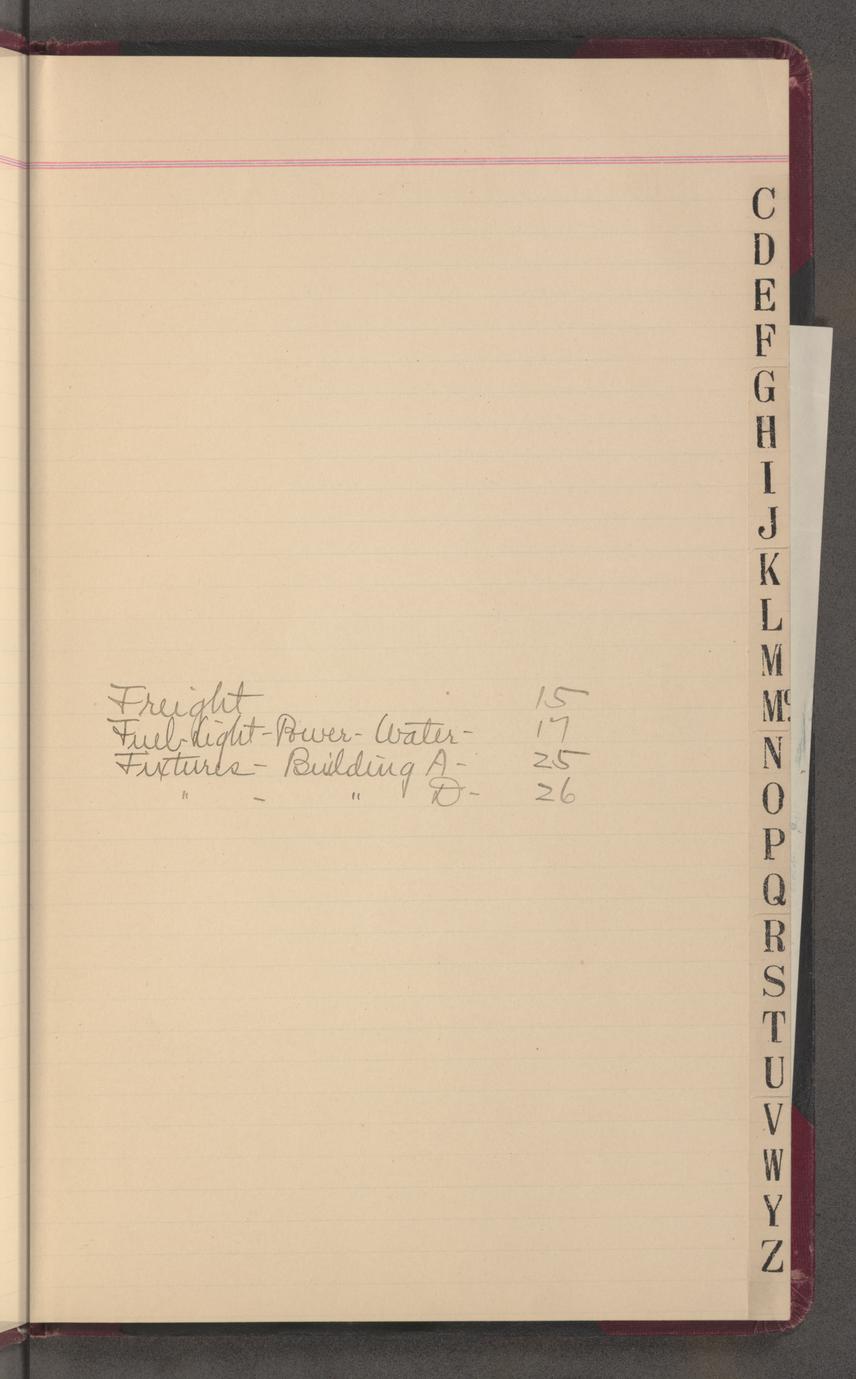 C
D
E
F
G
H
I
J
K
L
M
Mc.
N
O
P
Q
R
S
T
U
V
W
Y
Z
Freight 15
Fuel-Light-Power-Water- 17
Fixtures- Building A- 25
" - " D- 26